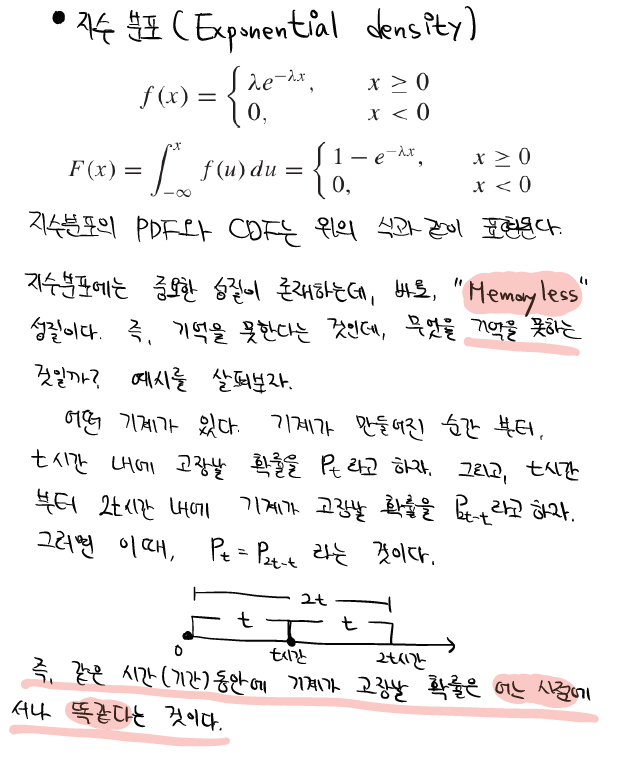 • 지수 분포 (Exponential density)
f(x) = { λe^{-λx}, x ≥ 0
0, x < 0
F(x) = ∫_{-∞}^{x} f(u) du = { 1 − e^{-λx}, x ≥ 0
0, x < 0
지수분포의 PDF와 CDF는 위의 식과 같이 표현된다.
지수분포에는 중요한 성질이 존재하는데, 바로, "Memoryless"
성질이다. 즉, 기억을 못한다는 것인데, 무엇을 기억을 못하는
것일까? 예시를 살펴보자.
어떤 기계가 있다. 기계가 만들어진 순간 부터,
t시간 내에 고장날 확률을 P_t 라고 하자. 그리고, t시간
부터 2t시간 내에 기계가 고장날 확률을 P_{2t-t}라고 하자.
그러면 이때, P_t = P_{2t-t} 라는 것이다.
2t
t t
0 t시간 2t시간
즉, 같은 시간(기간)동안에 기계가 고장날 확률은 어느 시점에
서나 똑같다는 것이다.